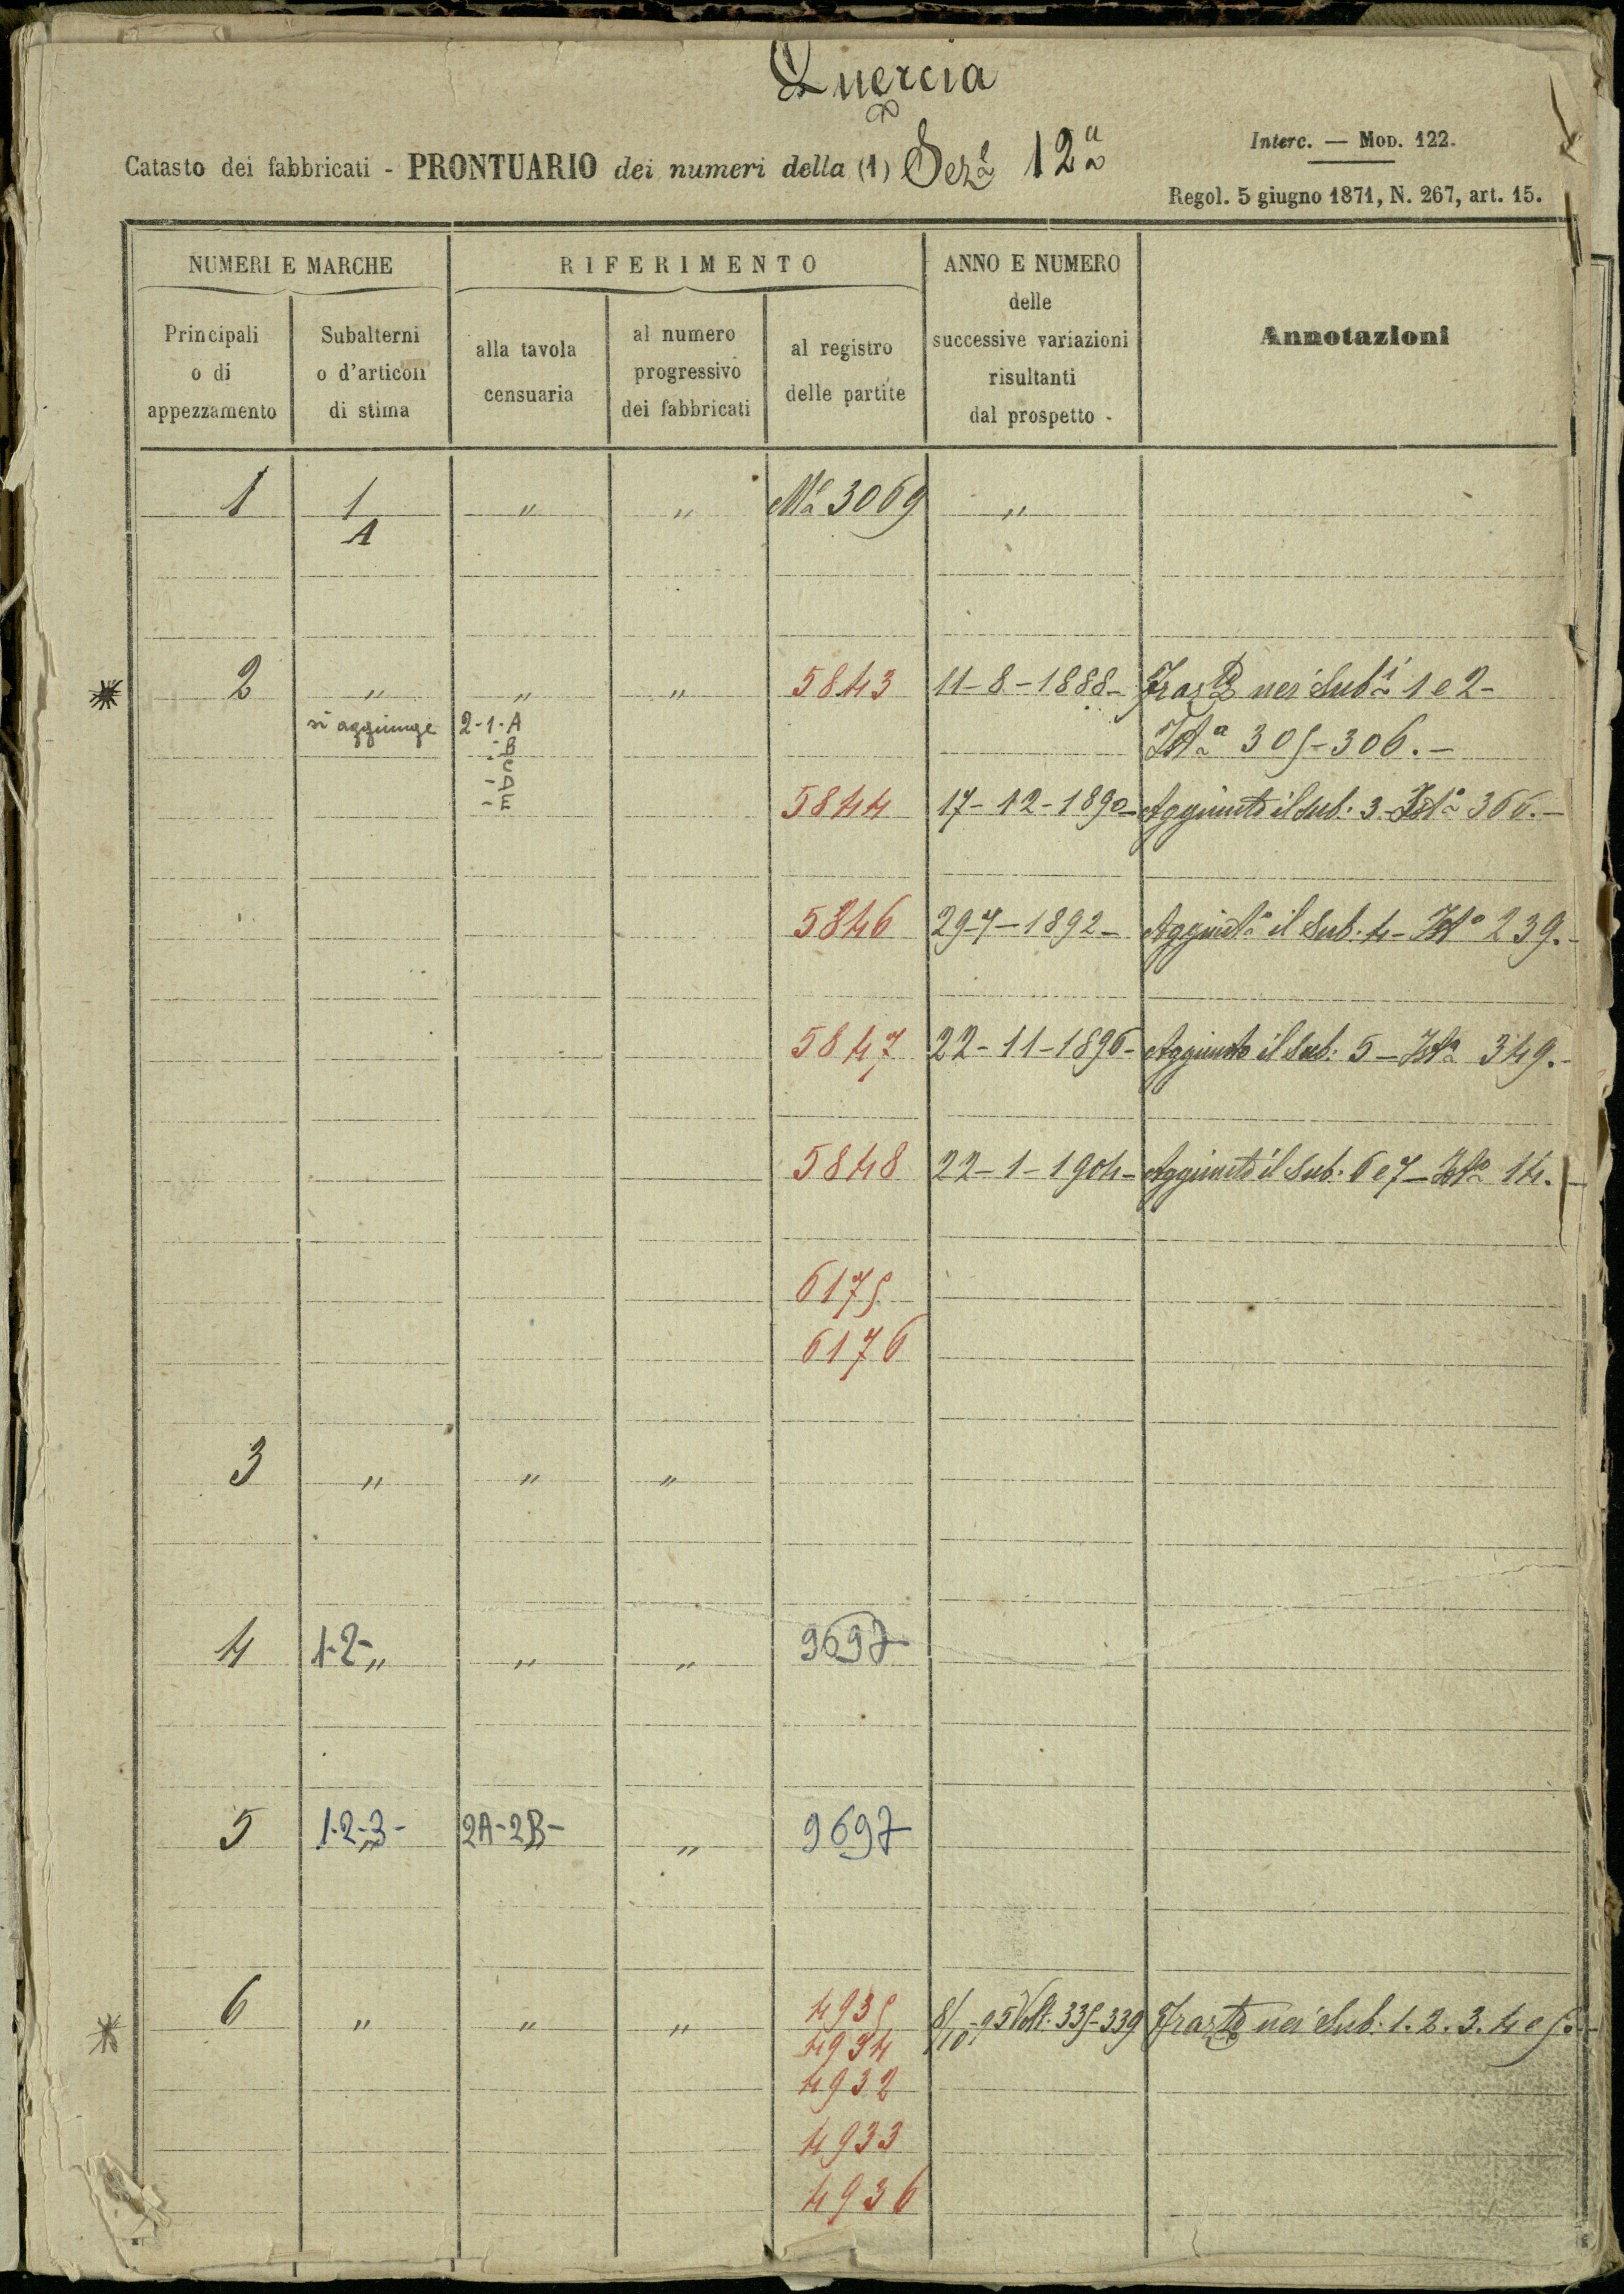 Quercia
Catasto dei fabbricati - PRONTUARIO dei numeri della (1) Sez.e 12a
Interc. — MOD. 122.
Regol. 5 giugno 1871, N. 267, art. 15.
NUMERI E MARCHE
Principali o di appezzamento
Subalterni o d'articoli di stima
RIFERIMENTO
alla tavola censuaria
al numero progressivo dei fabbricati
al registro delle partite
ANNO E NUMERO delle successive variazioni risultanti dal prospetto -
Annotazioni
1 1 " " Ma 3069 "
A
2 " " " 5843 11-8-1888- nei Subi 1 e 2-
si aggiunge 2-1-A
-B 305-306.-
-C
-D
-E
5844 17-12-1890- Aggiunto il Sub. 3- 366.-
5846 29-7-1892- Aggiunto il Sub. 4- 239.-
5847 22-11-1896- Aggiunto il Sub. 5- 349.-
5848 22-1-1904- Aggiunto il Sub. 6 e 7- 14.-
6175
6176
3 " " "
4 1-2-" " " 9697
5 1-2-3- 2A-2B- " 9697
6 " " " 4935 8/10-95 Volt. 335-339 nei Sub. 1. 2. 3. 4 e 5.-
4934
4932
4933
4936